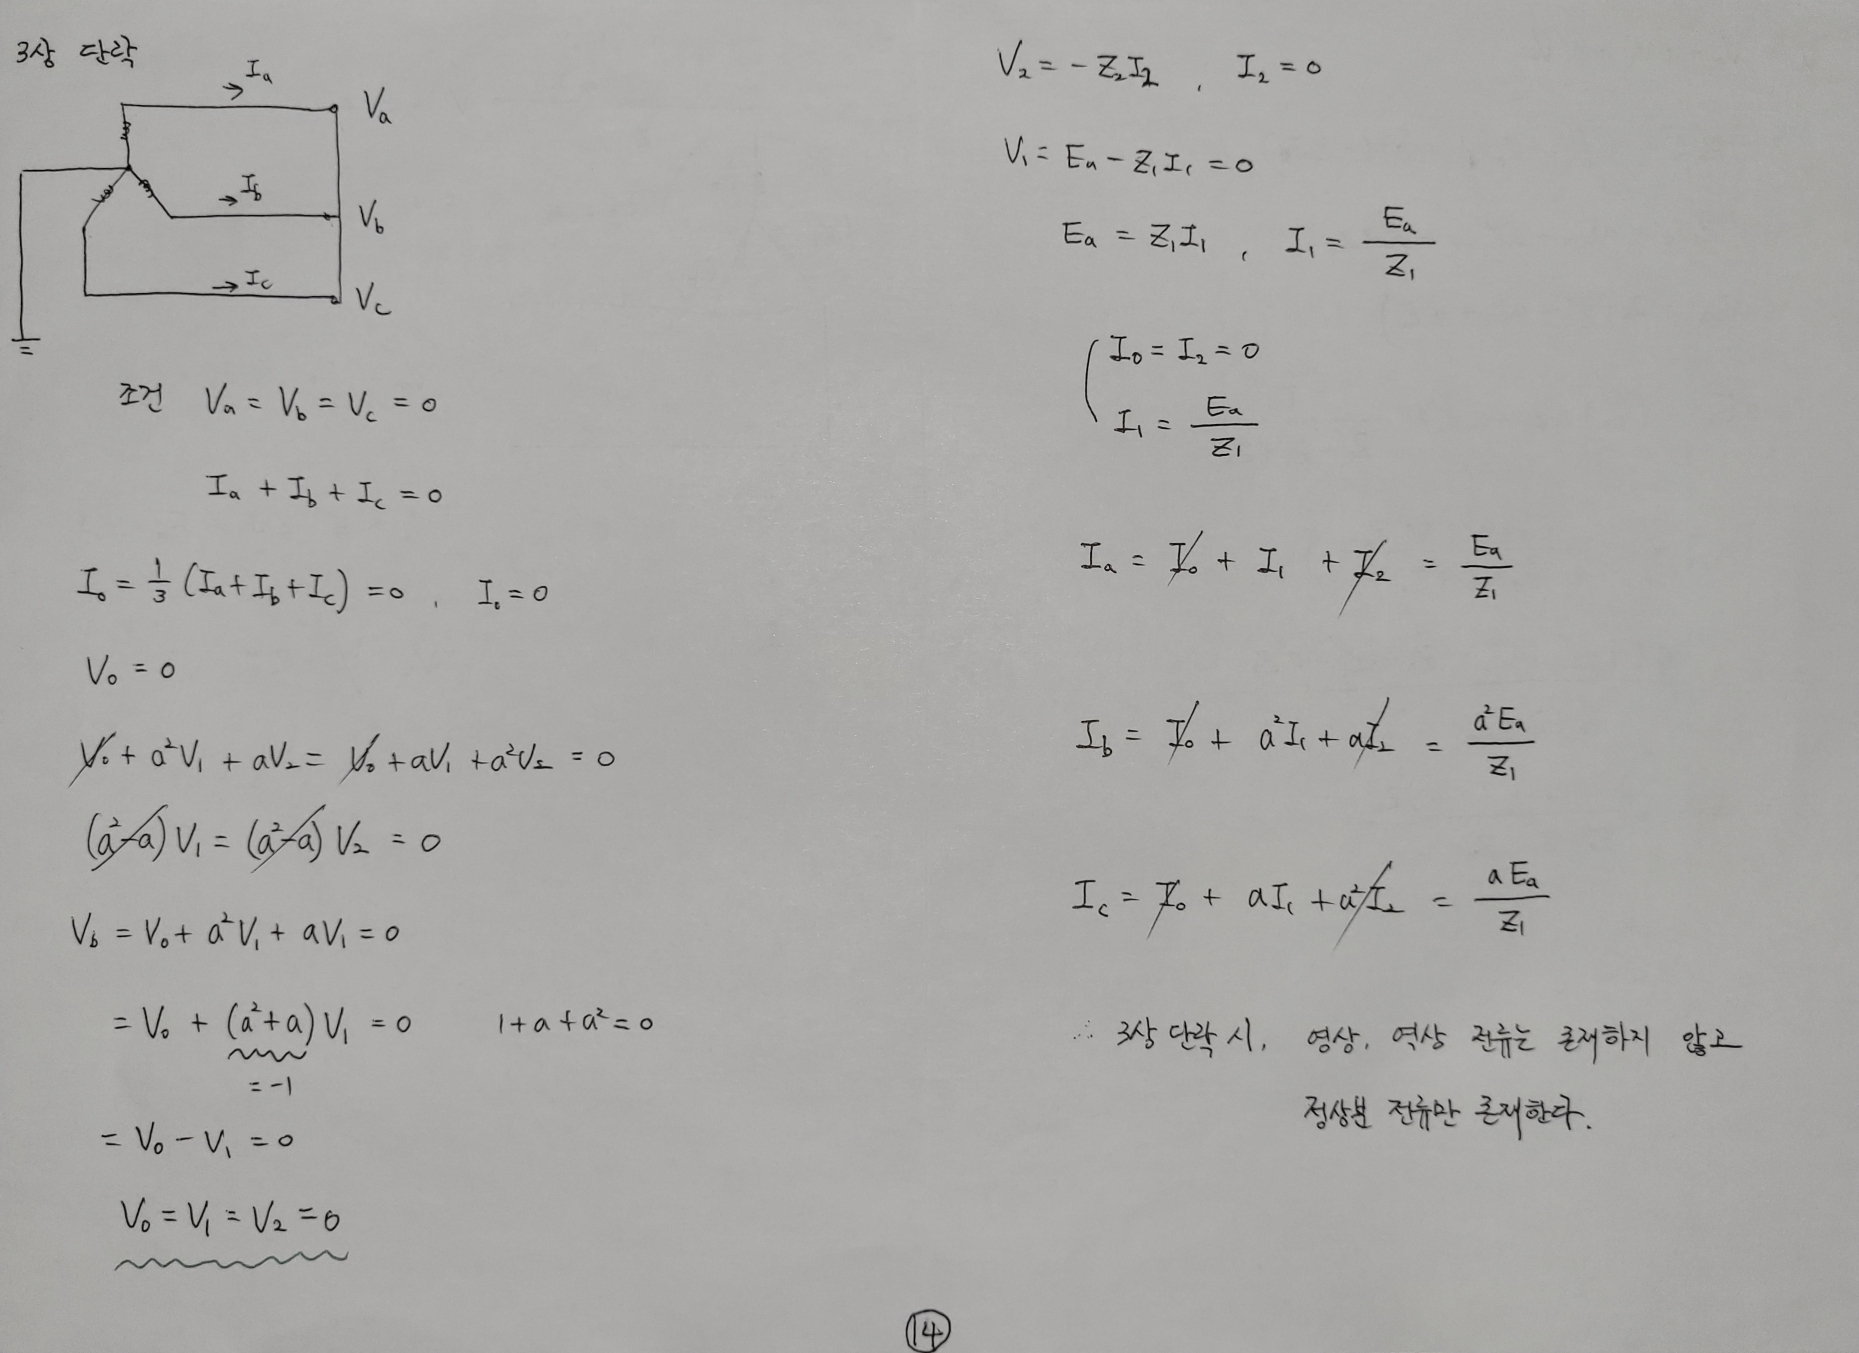 3상 단락
Ia
Va
Ib
Vb
Ic
Vc
조건 Va = Vb = Vc = 0
Ia + Ib + Ic = 0
I₀ = 1/3 (Ia + Ib + Ic) = 0 , I₀ = 0
V₀ = 0
V₀ + a²V₁ + aV₂ = V₀ + aV₁ + a²V₂ = 0
(a²-a) V₁ = (a²-a) V₂ = 0
Vb = V₀ + a²V₁ + aV₁ = 0
= V₀ + (a²+a) V₁ = 0 1+a+a² = 0
= -1
= V₀ - V₁ = 0
V₀ = V₁ = V₂ = 0
V₂ = - Z₂I₂ , I₂ = 0
V₁ = Ea - Z₁I₁ = 0
Ea = Z₁I₁ , I₁ = Ea/Z₁
I₀ = I₂ = 0
I₁ = Ea/Z₁
Ia = I₀ + I₁ + I₂ = Ea/Z₁
Ib = I₀ + a²I₁ + aI₂ = a²Ea/Z₁
Ic = I₀ + aI₁ + a²I₂ = aEa/Z₁
∴ 3상 단락 시, 영상, 역상 전류는 존재하지 않고
정상분 전류만 존재한다.
14